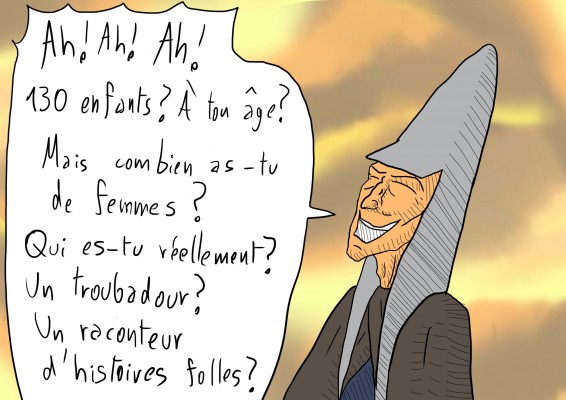 Ah! Ah! Ah!
130 enfants? À ton âge?
Mais combien as-tu
de femmes?
Qui es-tu réellement?
Un troubadour?
Un raconteur
d'histoires folles?